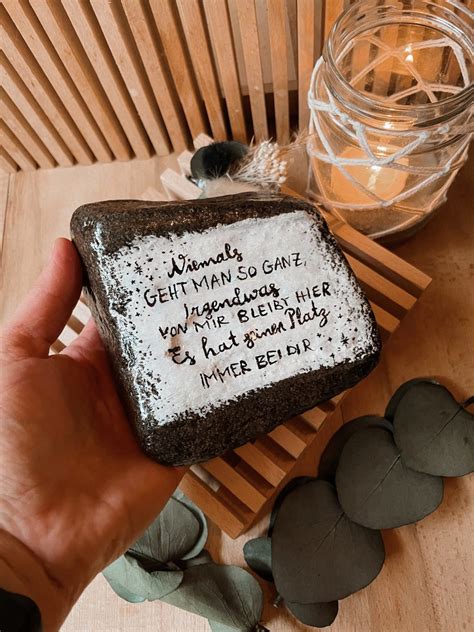 Niemals
GEHT MAN SO GANZ,
Irgendwas
VON MIR BLEIBT HIER
Es hat seinen Platz
IMMER BEI DIR